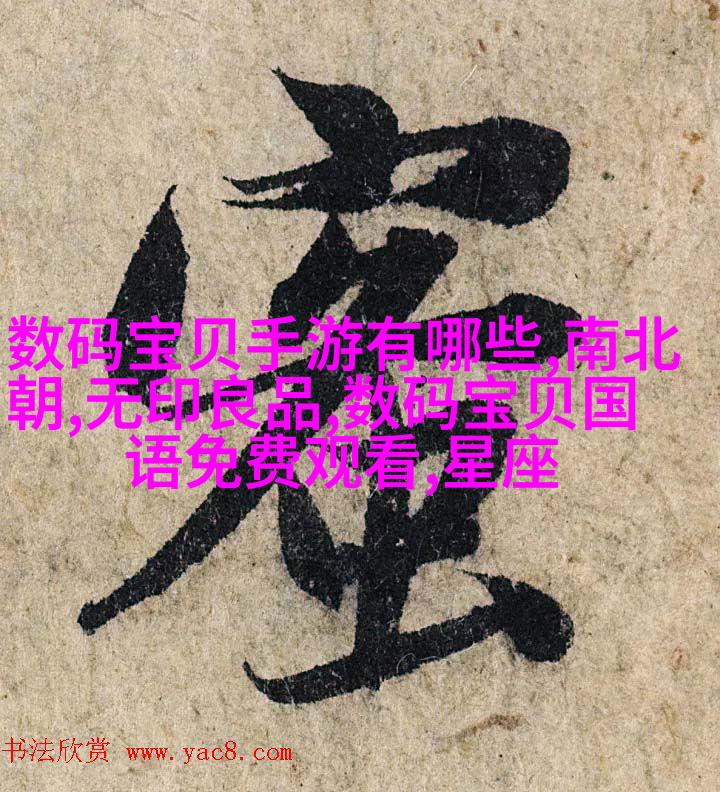 数码宝贝手游有哪些,南北
朝,无印良品,数码宝贝国
语免费观看,星座
书法欣赏 www.yac8.com